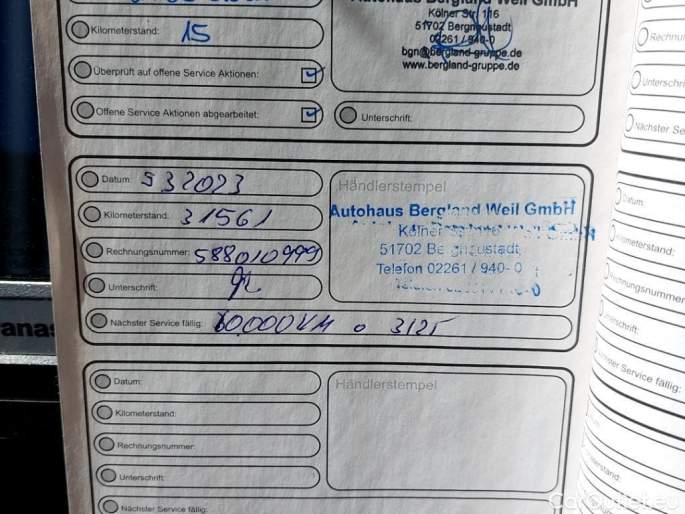 Autohaus Bergland Weil GmbH
Kölner Str. 116
51702 Bergneustadt
02261 / 940-0
bgn@bergland-gruppe.de
www.bergland-gruppe.de
Kilometerstand: 15
Überprüft auf offene Service Aktionen:
Offene Service Aktionen abgearbeitet:
Unterschrift:
Datum: 5 3 2023
Kilometerstand: 31561
Rechnungsnummer: 588010999
Unterschrift:
Nächster Service fällig: 60.000 KM o 3/25
Händlerstempel
Autohaus Bergland Weil GmbH
Kölner
51702 Bergneustadt
Telefon 02261 / 940-0
Datum:
Kilometerstand:
Rechnungsnummer:
Unterschrift:
Nächster Service fällig:
Händlerstempel
Unterschri
Nächster Se
Datum:
Kilometerstand:
Rechnungsnummer
Unterschrift:
Nächster Service fällig:
anas
CarOutlet.eu